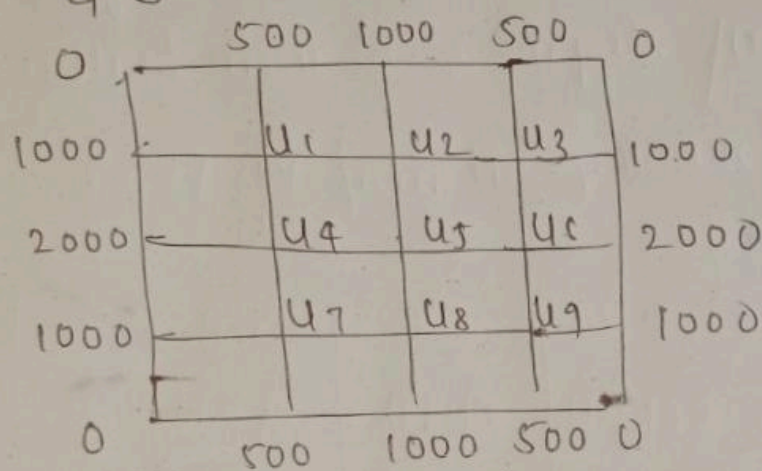 500 1000 500 0
0
1000 u1 u2 u3 1000
2000 u4 u5 u6 2000
1000 u7 u8 u9 1000
0 500 1000 500 0